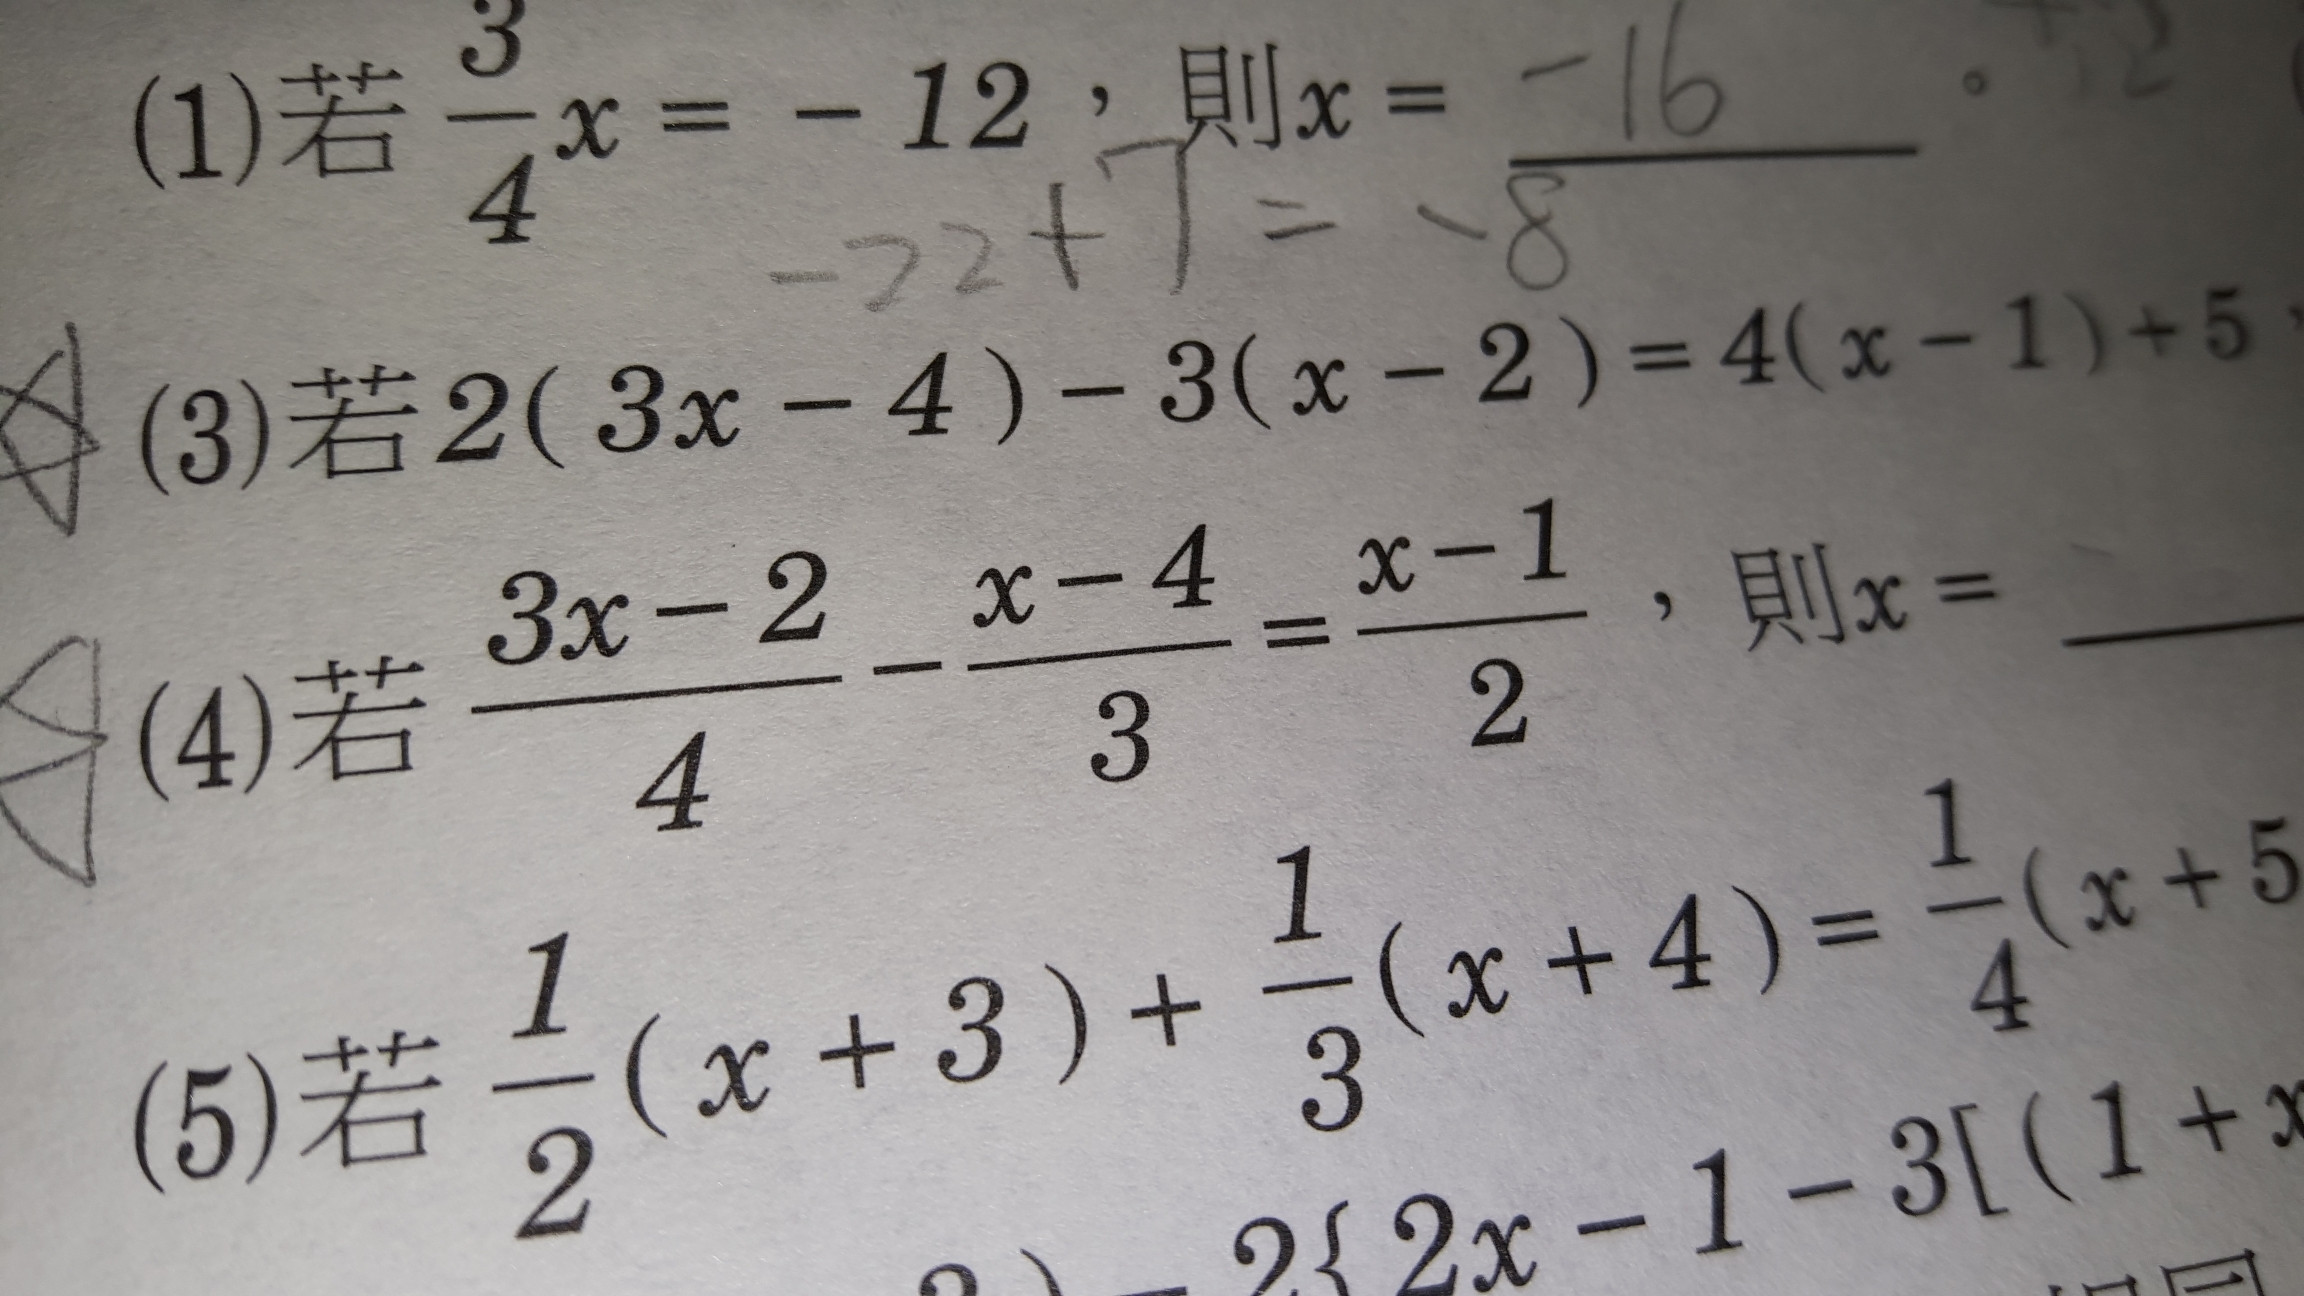 (1)若 3/4 x = -12，則x = -16 。
-22+7 = -8
(3)若2(3x-4)-3(x-2)=4(x-1)+5，
(4)若 (3x-2)/4 - (x-4)/3 = (x-1)/2，則x =
(5)若 1/2 (x+3) + 1/3 (x+4) = 1/4 (x+5
) - 2{2x-1-3[(1+x